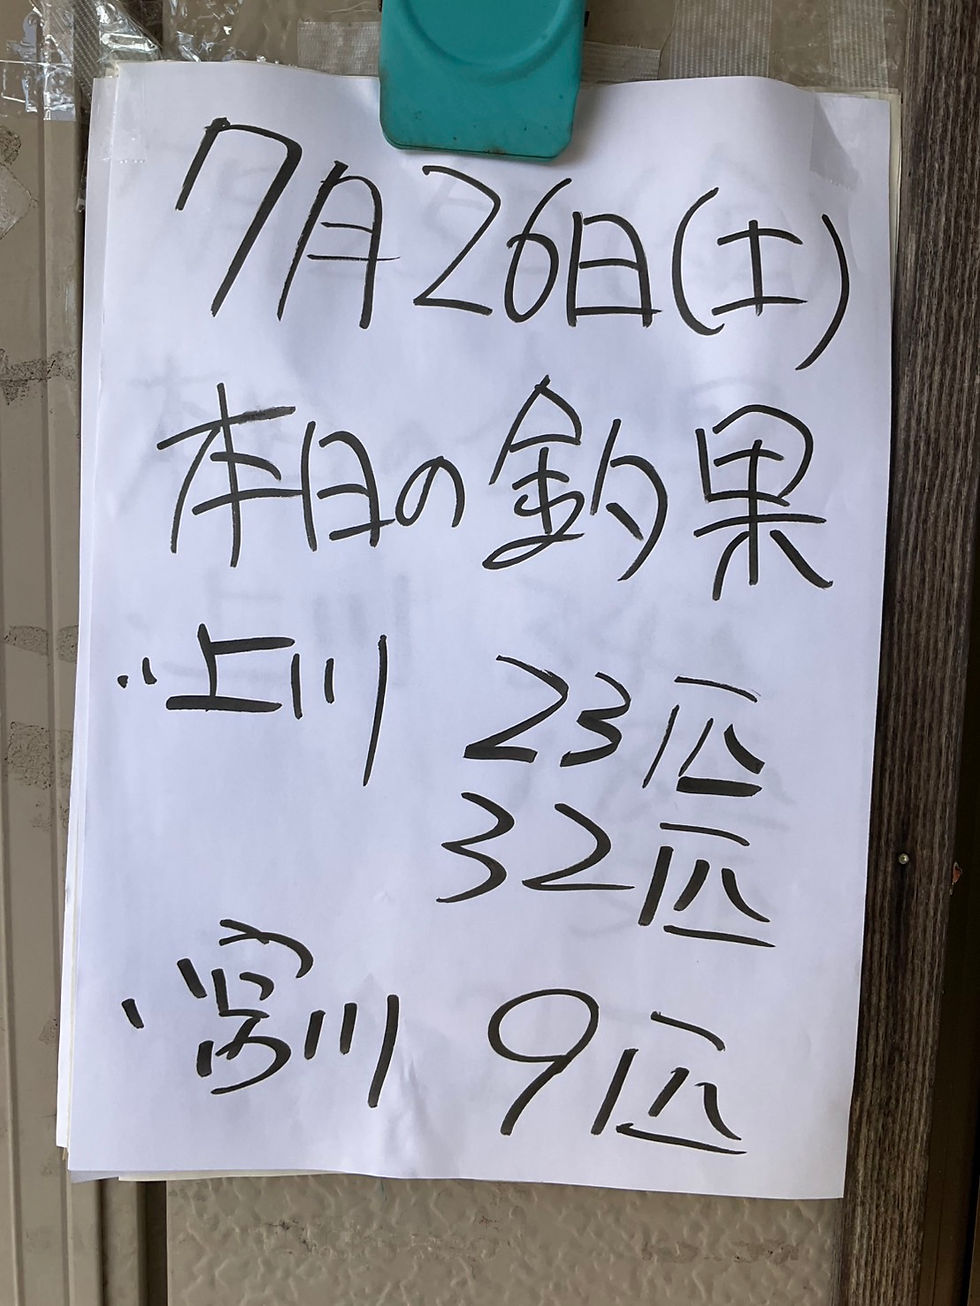 7月26日(土)
本日の釣果
上川 23匹
32匹
宮川 9匹